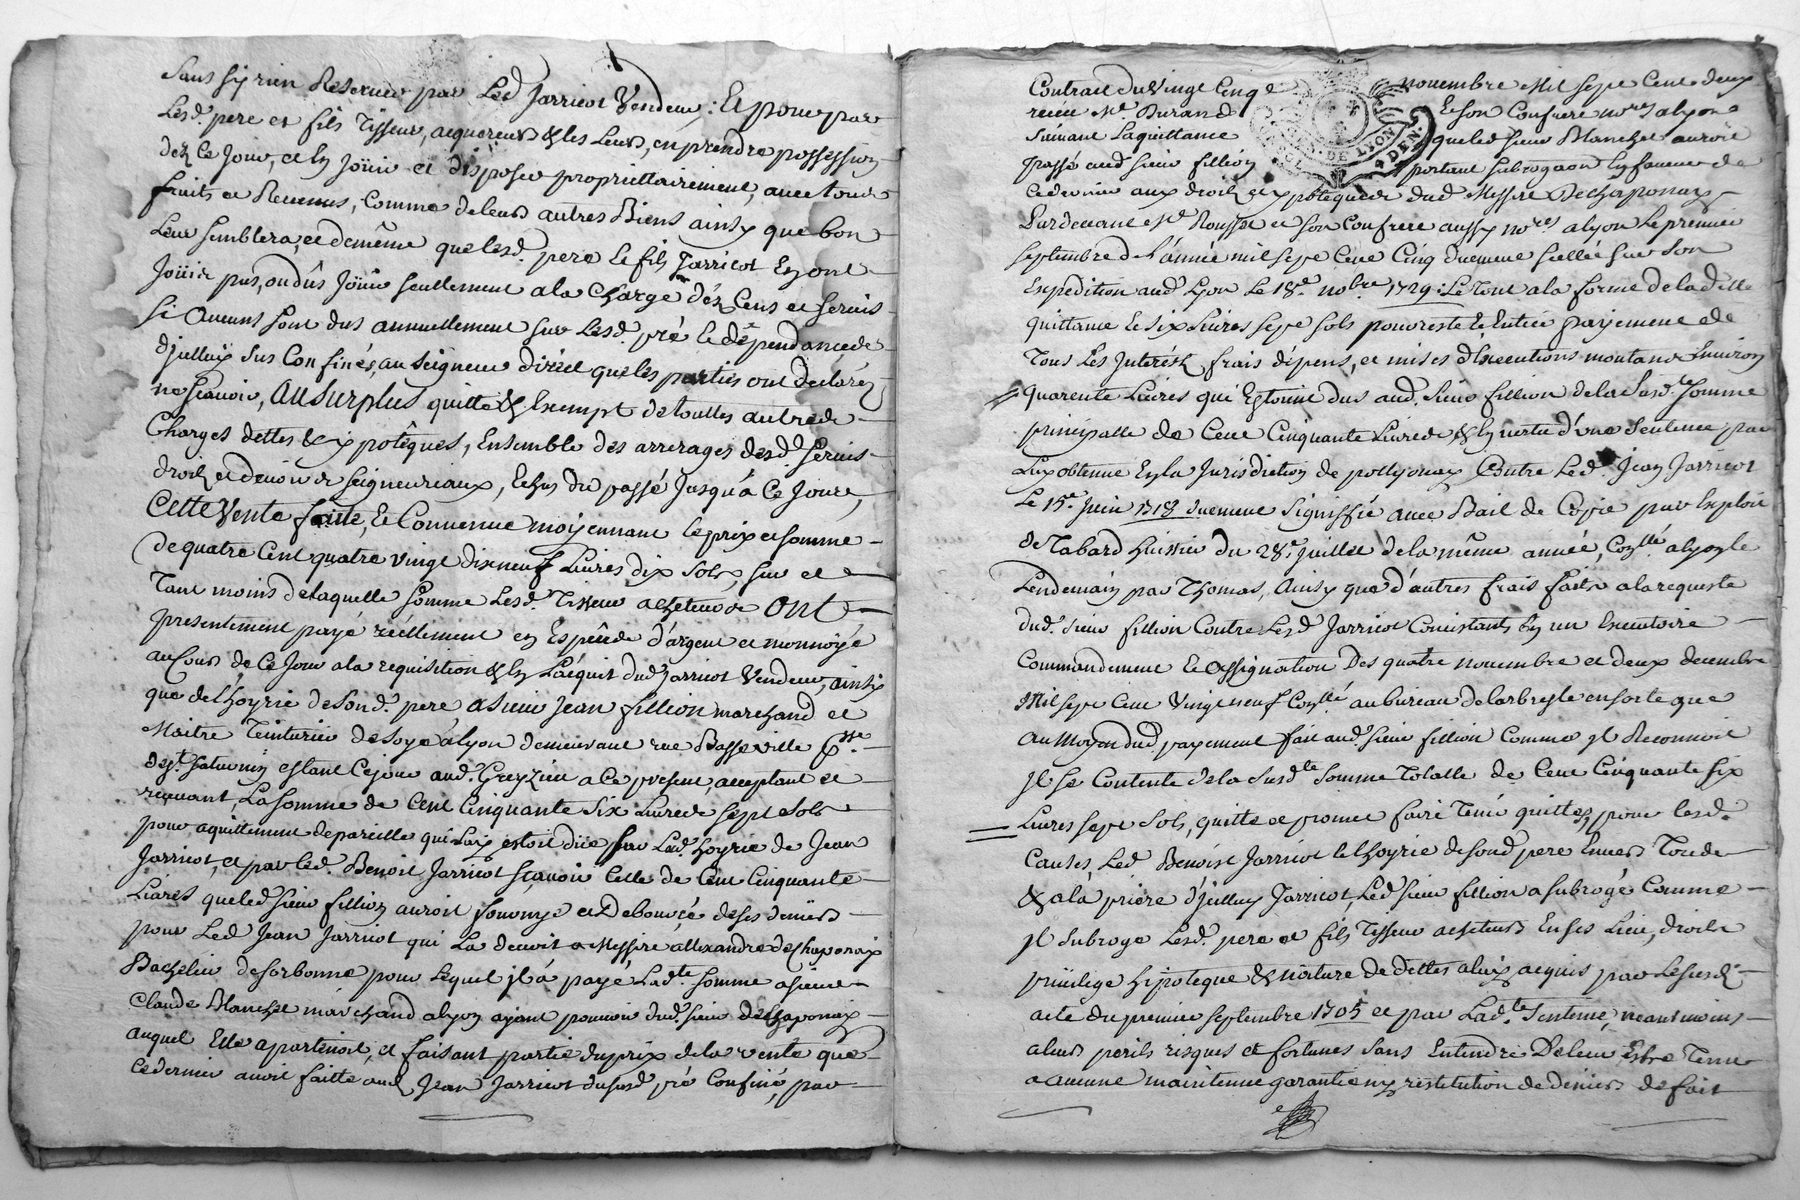 Sans s'y rien Reserver par Led. Jarricot Vendeur; Et pour par
Lesd. pere et fils Tisseur, acquereurs & les Leurs, en prendre possession
déz Ce Jour, et en Joüir et disposer proprietairement, avec tous
fruits et Revenus, Comme de leurs autres Biens ainsy que bon
Leur semblera, et de même que lesd. pere Et fils Jarricot En ont
Joüir pûs, ou dûs Joüir seullement a la Charge déz Cens et servis
si Aucuns sont dus annuellement sur Lesd. pré Et dépendances
djulluy sus Confinés, au seigneur direct que les parties ont declaréz
ne scavoir, Au surplus quitte & Exempt de touttes autres
Charges dettes & ypotêques, Ensemble des arrerages desd. servis
droits et devoirs seigneuriaux, Echus du passé Jusqu'à Ce Jour,
Cette Vente faitte, Et Convenue moyennant le prix et somme
de quatre Cent quatre vingt dix neuf Livres dix sols, sur et
Tant moins de laquelle somme Lesd. Tisseur acheteurs Ont
presentement payé réellement en Espéces d'argent et monnoye
au Cours de Ce Jour a la requisition & En L'acquit dud. Jarricot Vendeur, ainsy
que de l'hoyrie de Sond. pere a Sieur Jean fillion marchand et
Maitre Teinturier de Soye à Lyon demeurant rue Basseville Psse.
de St. Saturnin estant Cejour aud. Greyzieu a Ce present, acceptant et
recevant, La somme de Cent Cinquante Six Livres sept sols
pour aquittement de pareille qui Luy estoit düe par Lad. hoyrie de Jean
Jarricot, et par led. Benoit Jarricot scavoir Celle de Cent Cinquante
Livres que led Sieur fillion auroit fournye et Deboursée de ses deniers
pour Led Jean Jarricot qui La devoit a Messire allexandre de Chaponay
Bachelier de Sorbonne pour Lequel il a payé Lad.te somme a Sieur
Claude Blanchet marchand a Lyon ayant pouvoir dud. Sieur de Chaponay
auquel Elle apartenoit, et faisant partie du prix de la vente que
Ce dernier avoit faitte aud. Jean Jarricot dususd. pré Confiné, par
Contract du Vingt Cinqe novembre Mil sept Cent deux
receu Me. Durand Et son Confrere nores a Lyon
suivant La quittance que led sieur Blanchet auroit
passé aud sieur fillion portant subrogaon En faveur de
Ce dernier aux droits et ypoteques dud Messire DeChaponay
Pardevant Me Rousset et son Confrere aussy nores a Lyon Le premier
septembre de l'année mil sept Cent Cinq duement scellée sur son
Expedition aud. Lyon Le 18e. nobre 1729. Le Tout a la forme de laditte
quittance Et six Livres sept sols pour reste Et Entier payement de
Tous Les Interéts, frais dépens, et mises d'Executions montant Environ
quarente Livres qui Estoint dus aud. Sieur fillion de la Susd.te somme
principalle de Cent Cinquante Livres & En vertu d'une Sentence par
Luy obtenue En la Jurisdiction de pollyonay Contre Led. Jean Jarricot
Le 15e. Juin 1718 duement Signiffié avec Bail de Copie par Exploit
de Tabard huissier du 28e. Juillet de la même année, Conllé a Lyon le
Lendemain par Thomas, Ainsy que d'autres frais faits a la requeste
dud. sieur fillion Contre Lesd Jarricot Concistants En un Executoire
Commandement Et assignation Des quatre novembre et deux decembre
Mil sept Cent Vingt neuf Conllé au bureau de larbresle en sorte que
Au Moyen dud payement fait aud. sieur fillion Comme Il Reconnoit
Il se Contente de la Susd.te Somme Totalle de Cent Cinquante six
Livres sept sols, quitte et promet faire Tenir quittes, pour lesd.
Causes, Led. Benoist Jarricot Et l'hoyrie desond. pere Envers Tous
& a la priere d'julluy Jarricot, Led sieur fillion a subrogé Comme
Il Subroge Lesd. pere et fils Tisseur acheteurs En ses Lieu, droits
privilege hipoteque & nature de dettes a luy acquis par Le Susd.
acte du premier septembre 1705 et par Lad.te Sentence, neantmoins
a leurs perils risques et fortunes sans Entendre De leur Estre Tenu
a aucune maintenue garantie ny restitution de deniers de fait
GEN. DE LYON
4 DEN.